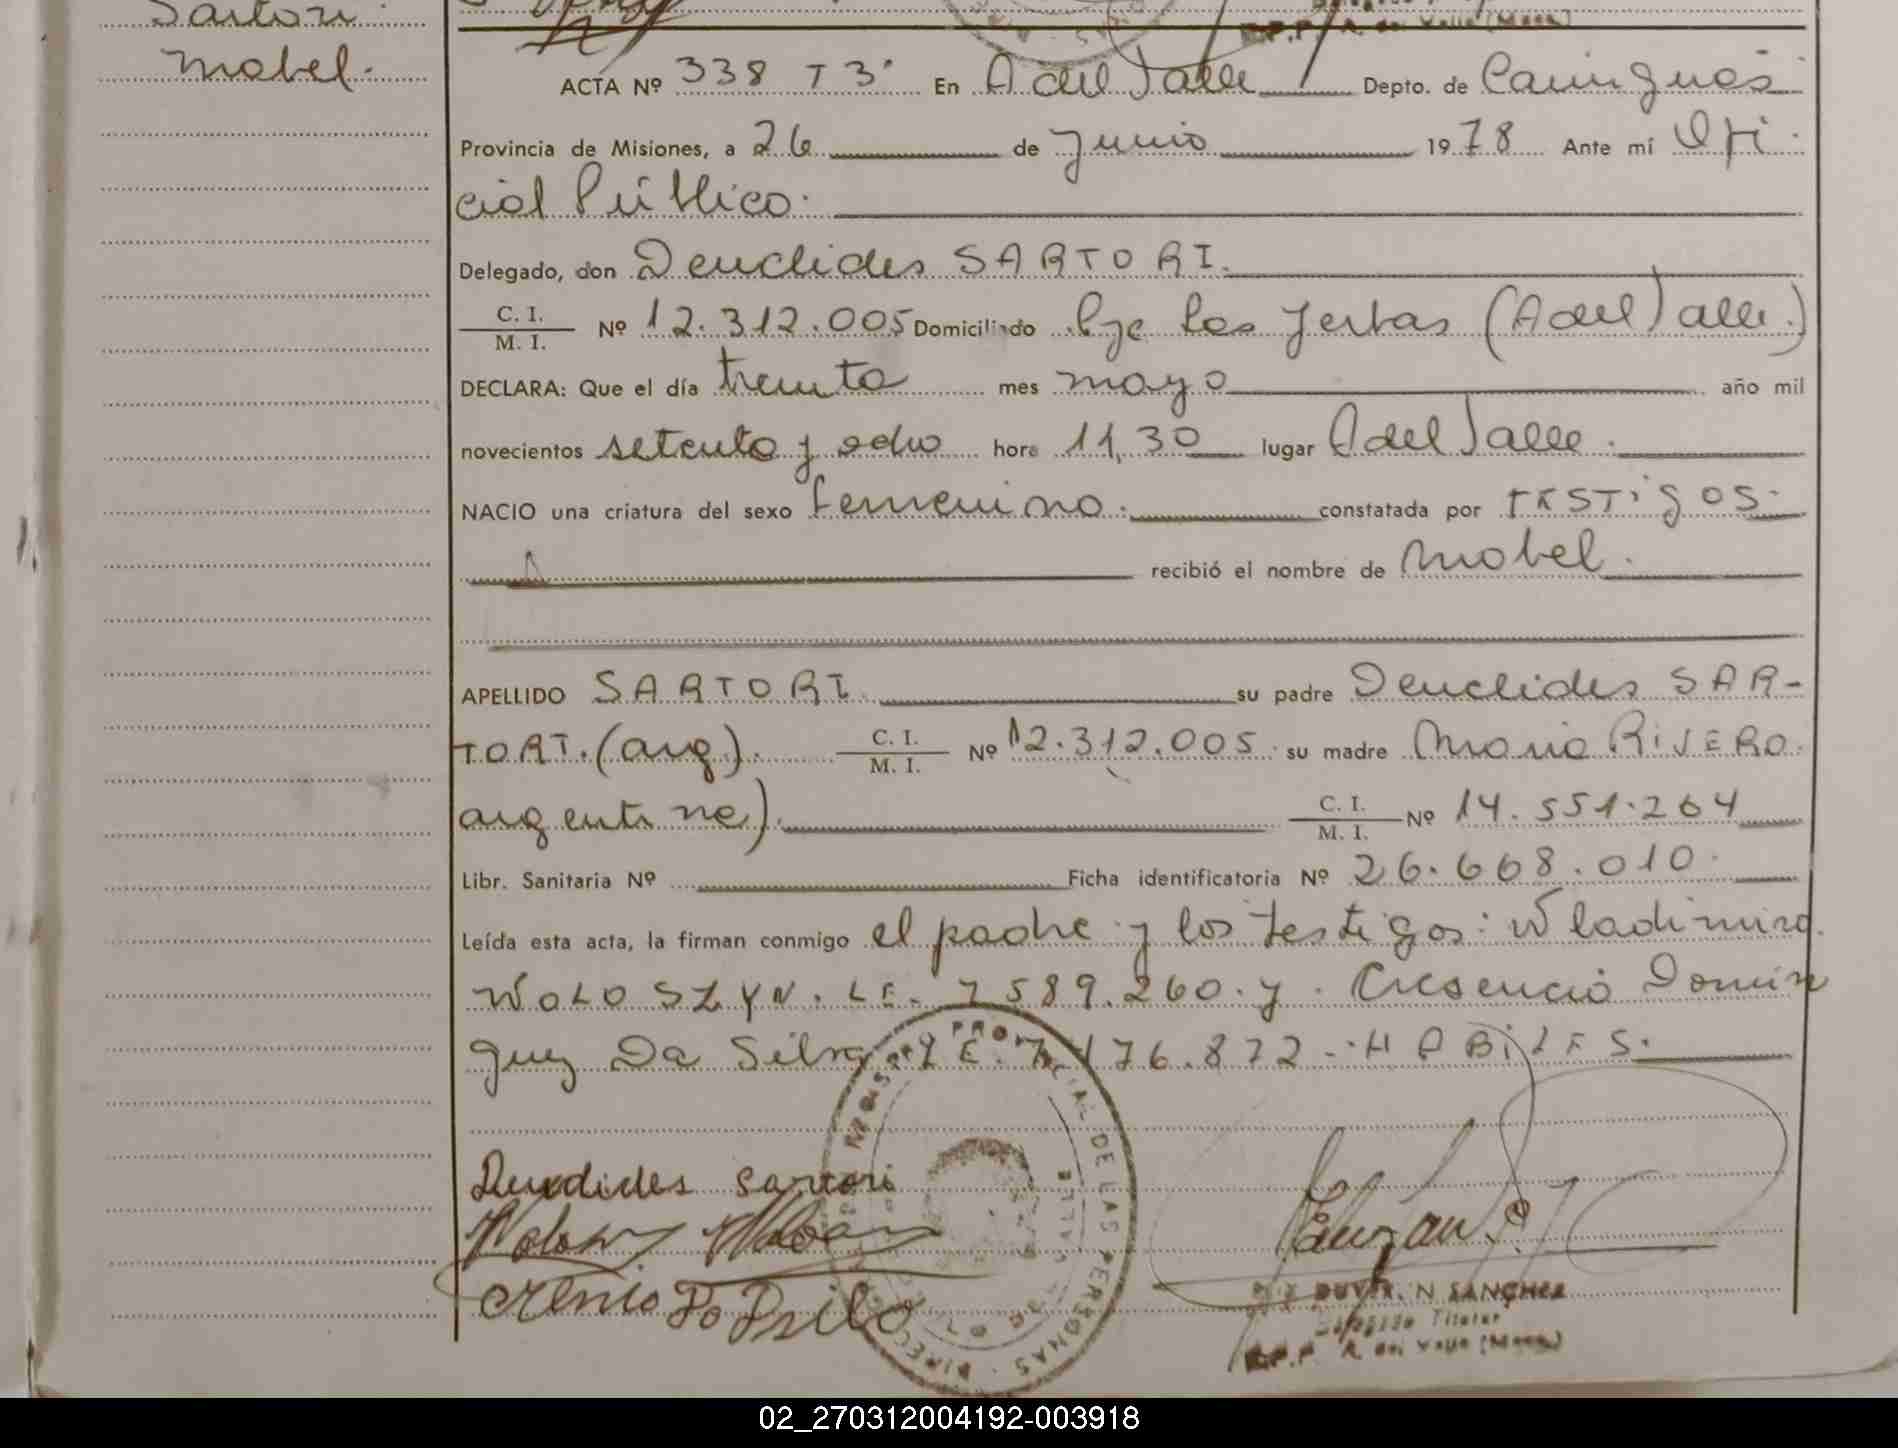 Sartori
Mabel.
ACTA Nº 338 T 3º En A del Valle Depto. de Cainguás
Provincia de Misiones, a 26 de Junio 1978 Ante mí Ofi
cial Público.
Delegado, don Deuclides SARTORI.
C. I.
M. I. Nº 12.312.005 Domiciliado Pje Las Yerbas (A del Valle.)
DECLARA: Que el día treinta mes mayo año mil
novecientos setenta y ocho hora 11,30 lugar A del Valle.
NACIO una criatura del sexo femenino. constatada por TESTIGOS.
recibió el nombre de Mabel.
APELLIDO SARTORI. su padre Deuclides SAR-
TORI. (arg). C. I.
M. I. Nº 12.312.005. su madre Maria RIVERO.
argentina). C. I.
M. I. Nº 14.551.264
Libr. Sanitaria Nº Ficha identificatoria Nº 26.668.010.
Leída esta acta, la firman conmigo el padre y los testigos: Wladimiro.
WOLOSZYN. LE. 7589.260. y. Cresencio Domin
guez Da Silva LE. 7.476.872 -. HABILES.
Deuclides Sartori
REGISTRO PROVINCIAL DE LAS PERSONAS
N SANCHEZ
Delegado Titular
R.P.P. A. del Valle (Mnes)
02_270312004192-003918